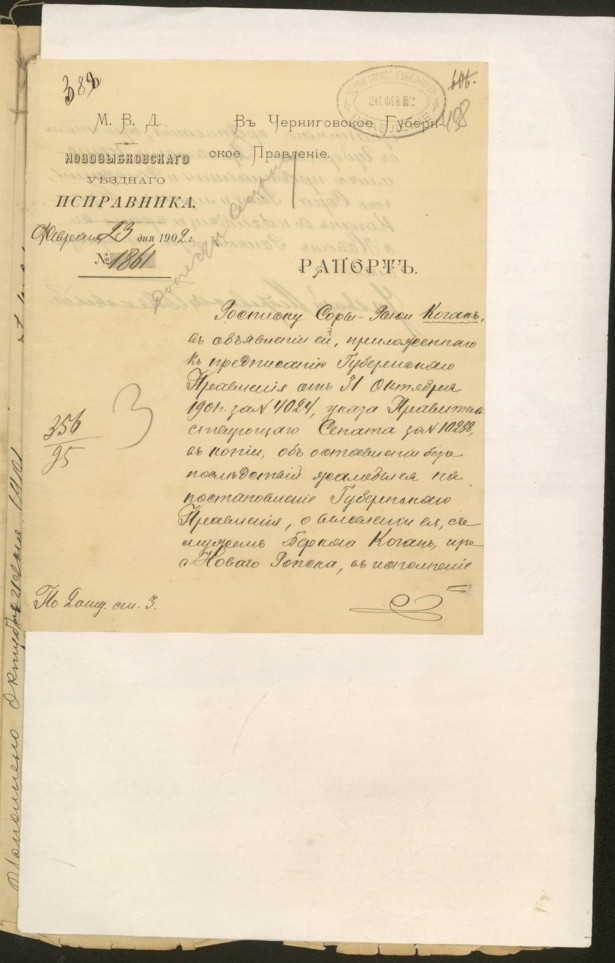 382
М. В. Д.
НОВОЗЫБКОВСКАГО
УѢЗДНАГО
ИСПРАВНИКА.
Февраля 23 дня 1902 г.
№ 1861
Въ Черниговское Губерн-
ское Правленіе.
498
РАПОРТЪ.
Росписку Соры-Рейзи Коганъ,
въ объявленіи ей, приложеннаго
къ предписанію Губернскаго
Правленія отъ 31 Октября
1901 г. за № 4024, указа Правитель-
ствующаго Сената за № 10288,
въ копіи, объ оставленіи безъ
послѣдствій жалобы ея на
постановленіе Губернскаго
Правленія, о выселеніи ея, съ
мужемъ Беркою Коганъ, изъ
с. Новаго Ропска, въ исполненіе
356
95
3
По 2 отд. ст. 3.
1901